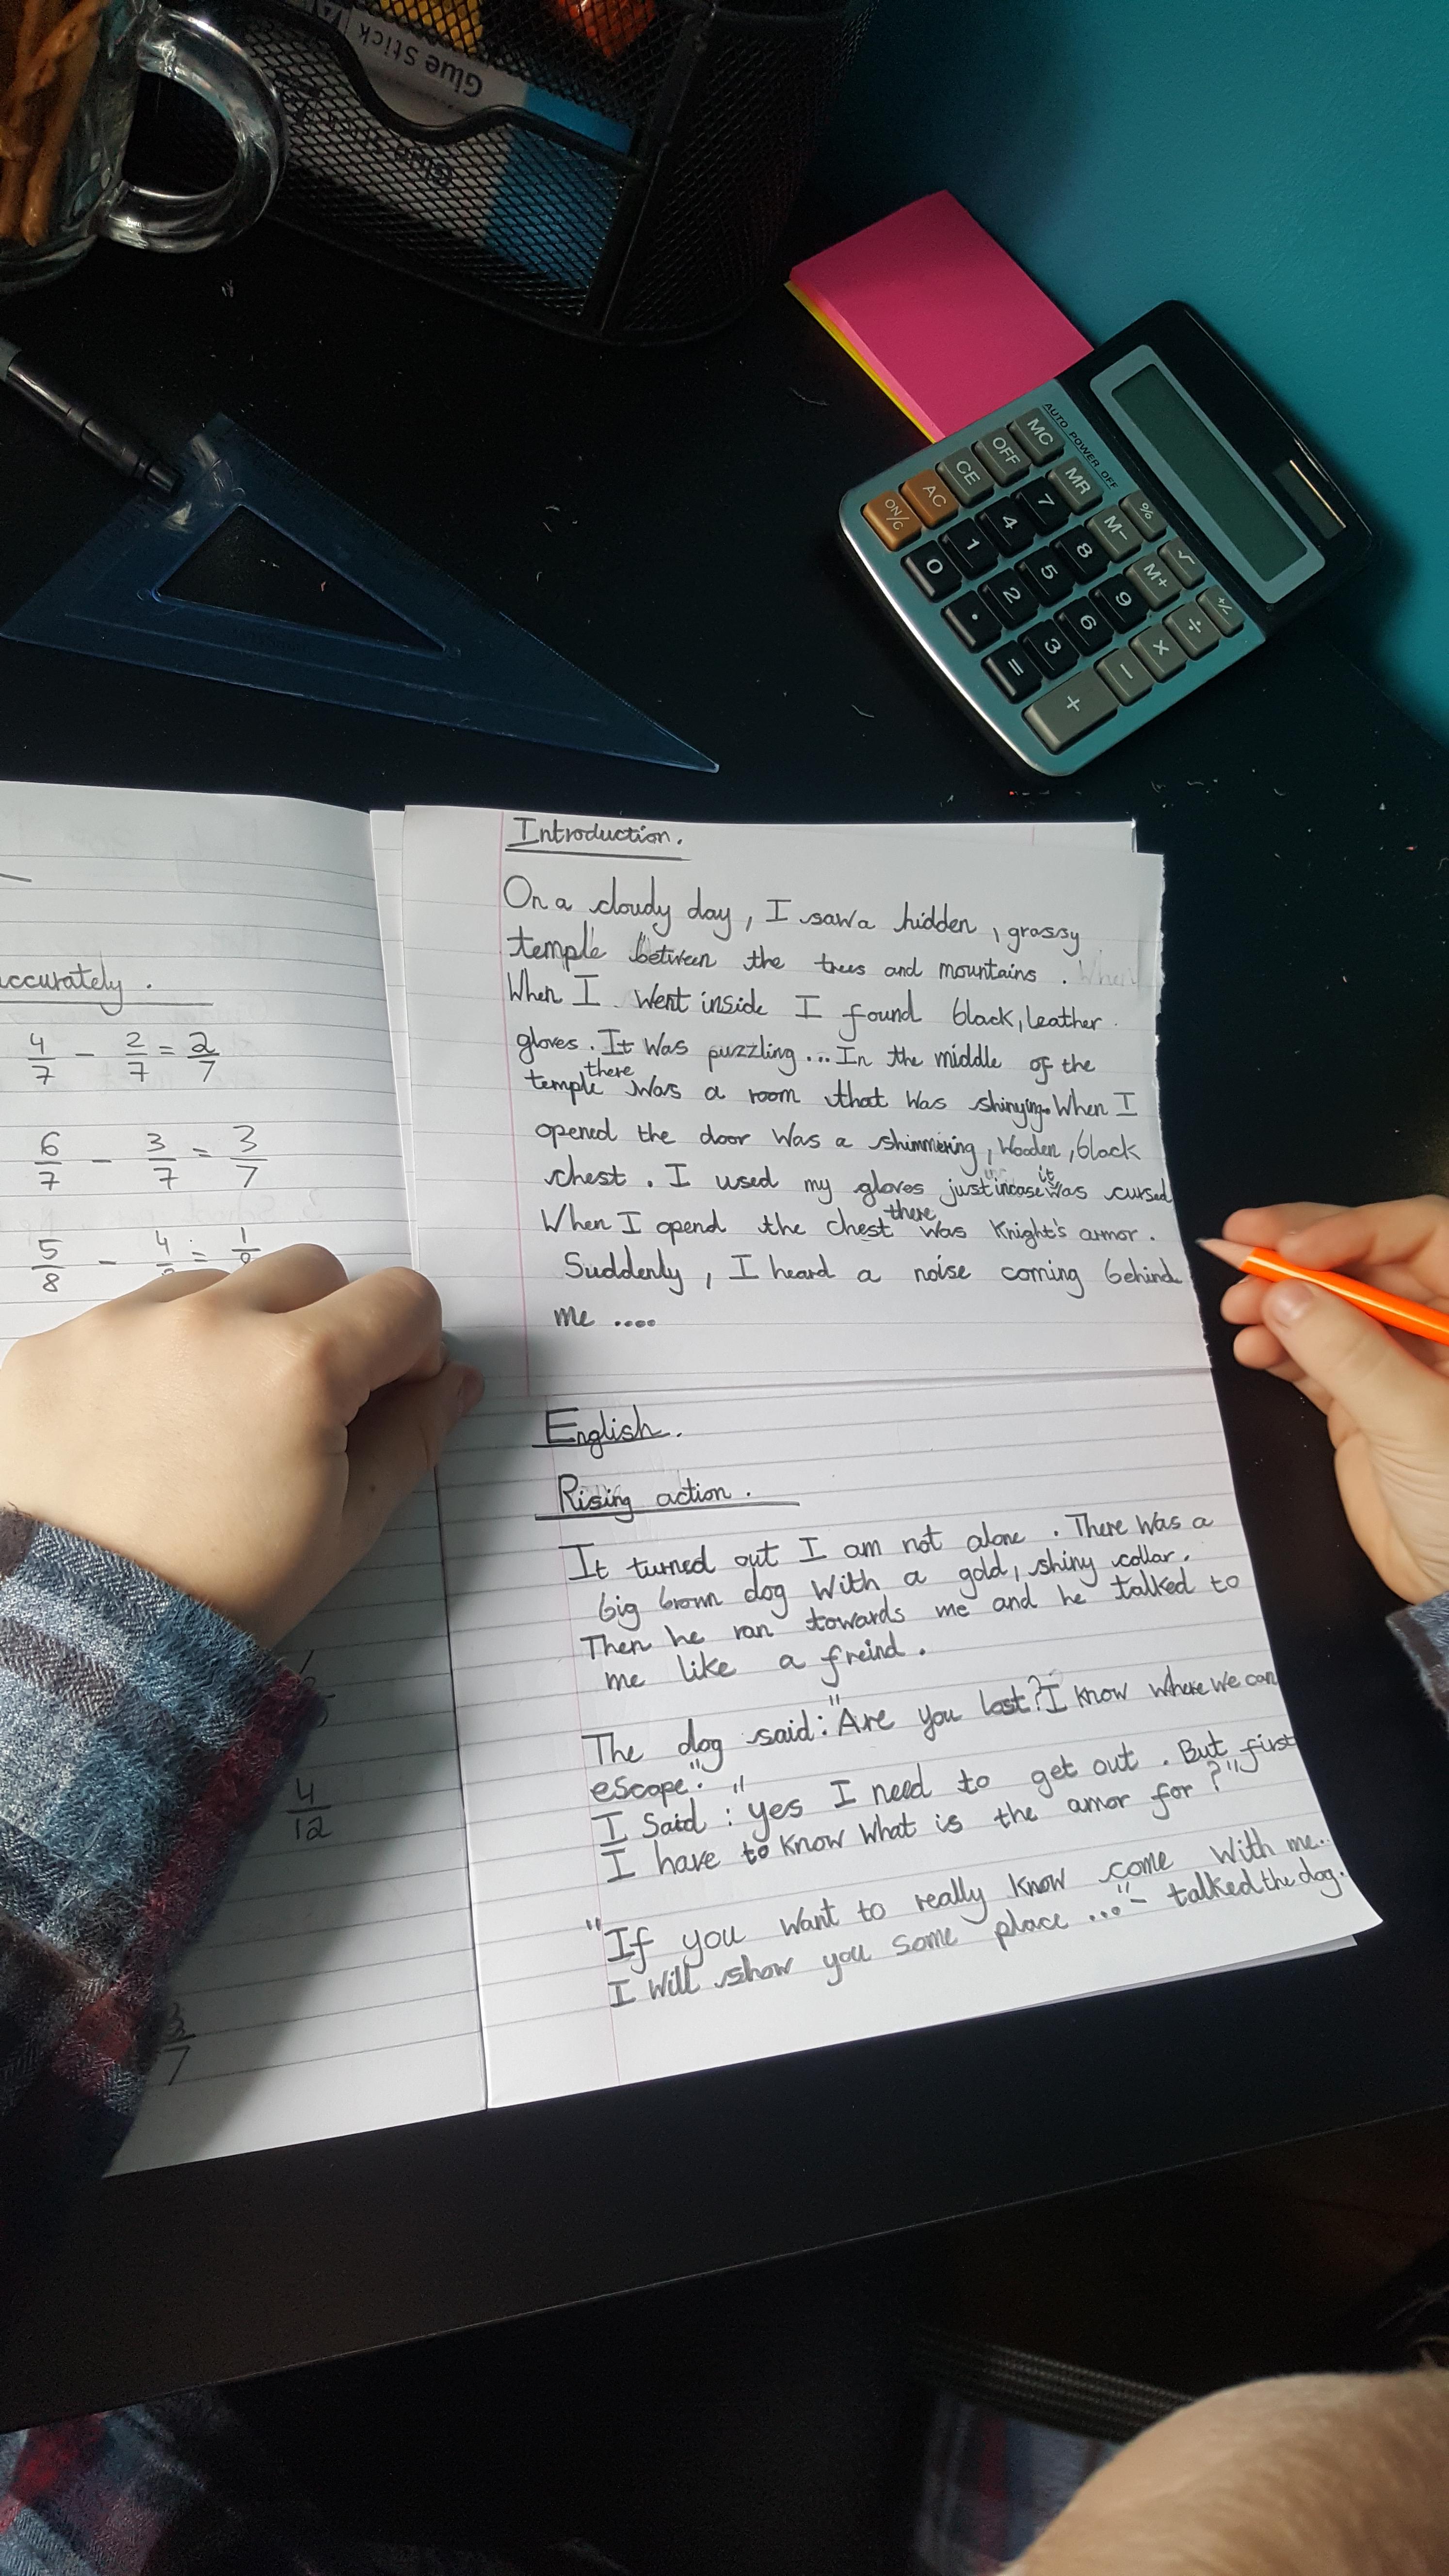 Glue Stick
Glue
AUTO POWER OFF
MC
OFF
CE
AC
ON/C
MR
7
4
1
0
%
M-
8
5
2
.
√
M+
9
6
3
=
+/-
÷
×
−
+
ccurately.
4/7 - 2/7 = 2/7
6/7 - 3/7 = 3/7
5/8 - 4/ = 1/
4/12
3/7
Introduction.
On a cloudy day, I saw a hidden, grassy
temple between the trees and mountains. When
When I went inside I found black, leather
gloves. It was puzzling... In the middle of the
temple there was a room that was shinying. When I
opened the door was a shimmering, wooden, black
chest. I used my gloves just incase it was cursed
When I opend the chest there was Knight's armor.
Suddenly, I heard a noise coming behind
me ....
English.
Rising action.
It turned out I am not alone. There was a
big brown dog with a gold, shiny collar.
Then he ran towards me and he talked to
me like a freind.
The dog said: "Are you lost? I know where we can
escope".
I Said: "yes I need to get out. But first
I have to know what is the amor for?"
"If you want to really know come with me..
I will show you some place ..." - talked the dog.